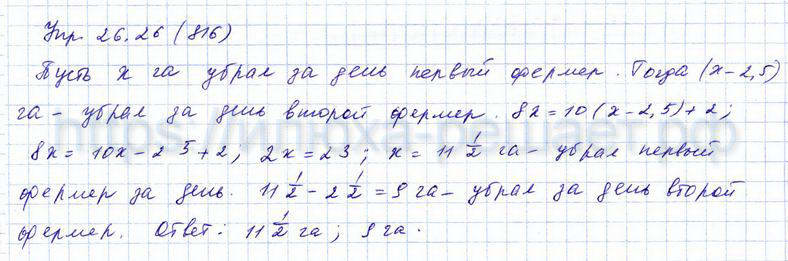 Упр. 26.26 (816)
Пусть x га убрал за день первый фермер. Тогда (x-2,5)
га - убрал за день второй фермер. 8x=10(x-2,5)+2;
8x= 10x-25+2; 2x=23; x= 11 1/2 га - убрал первый
фермер за день. 11 1/2 - 2 1/2 = 9 га - убрал за день второй
фермер. Ответ: 11 1/2 га; 9 га.